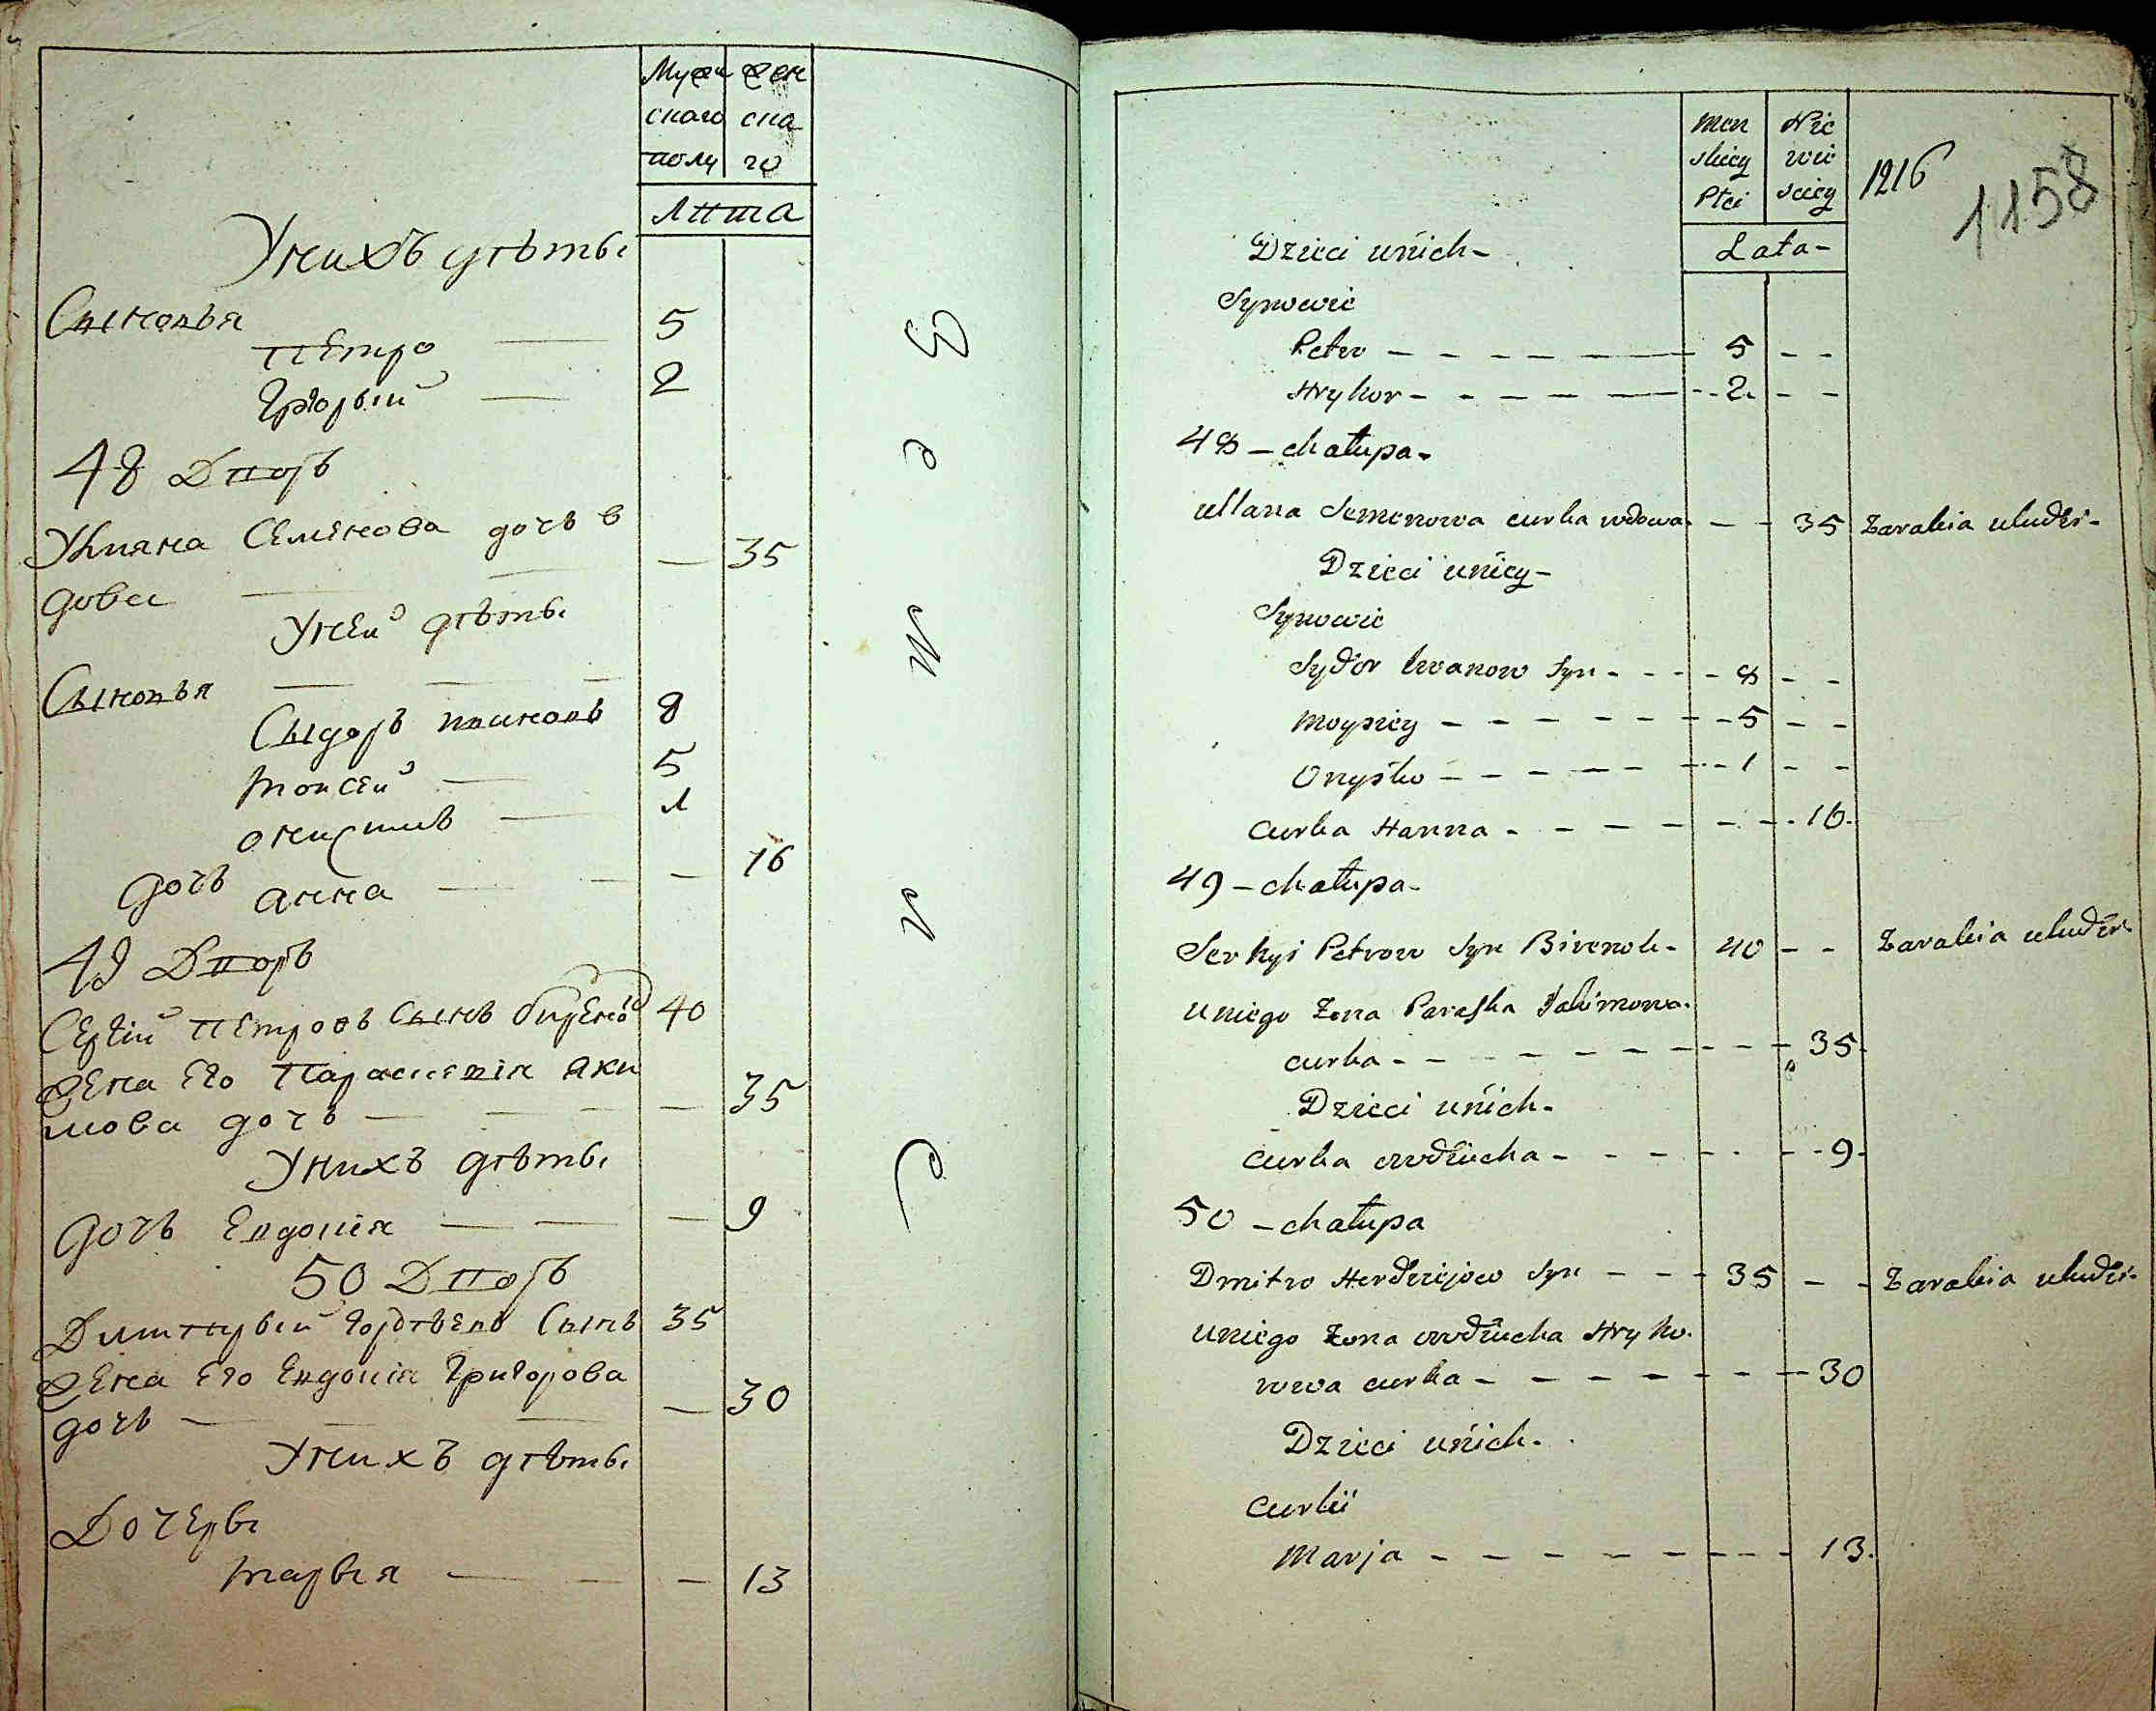 Мужескаго полу
Женскаго
Лѣта
У нихъ дѣты
Сыновья
Петро — 5
Грыгорый — 2
48 Дворъ
Ульяна Семенова дочь в
дова — — 35
У ней дѣты
Сыновья — — —
Сыдоръ Ивановъ 8
Моисей — 5
Онисимъ — 1
дочь Анна — — — 16
49 Дворъ
Сергій Петровъ Сынъ Биренокъ 40
Жена Его Параскевія Яки
мова дочь — — — — 35
У нихъ дѣты
дочь Евдокія — — — 9
50 Дворъ
Дмитрый Гордѣевъ Сынъ 35
Жена Его Евдокія Григорова
дочь — — — — 30
У нихъ дѣты
Дочеры
Марья — — — 13
Men
skiey
Płci
Nie
wie
sciey
1216
1158
Lata -
Dzieci u nich -
Synowie
Petro - - - - - 5 - -
Hryhor - - - - - 2 - -
48 - chałupa -
Ullana Semenowa curka wdowa - - 35 Zarabia u ludzi -
Dzieci u niey -
Synowie
Sydor Iwanow Syn - - - 8 - -
Moysiey - - - - - 5 - -
Onyśko - - - - - 1 - -
Curka Hanna - - - - - 16 -
49 - chałupa -
Serhyi Petrow Syn Birenok - 40 - - Zarabia u ludzi -
U niego Zona Paraska Jakimowa -
curka - - - - - - 35 -
Dzieci u nich -
Curka Owdiucha - - - - - 9 -
50 - chałupa
Dmitro Herdziejow Syn - - - 35 - - Zarabia u ludzi -
U niego Zona Owdiucha Hryho -
rowa curka - - - - - - 30
Dzieci u nich -
Curki
Marja - - - - - - 13 -